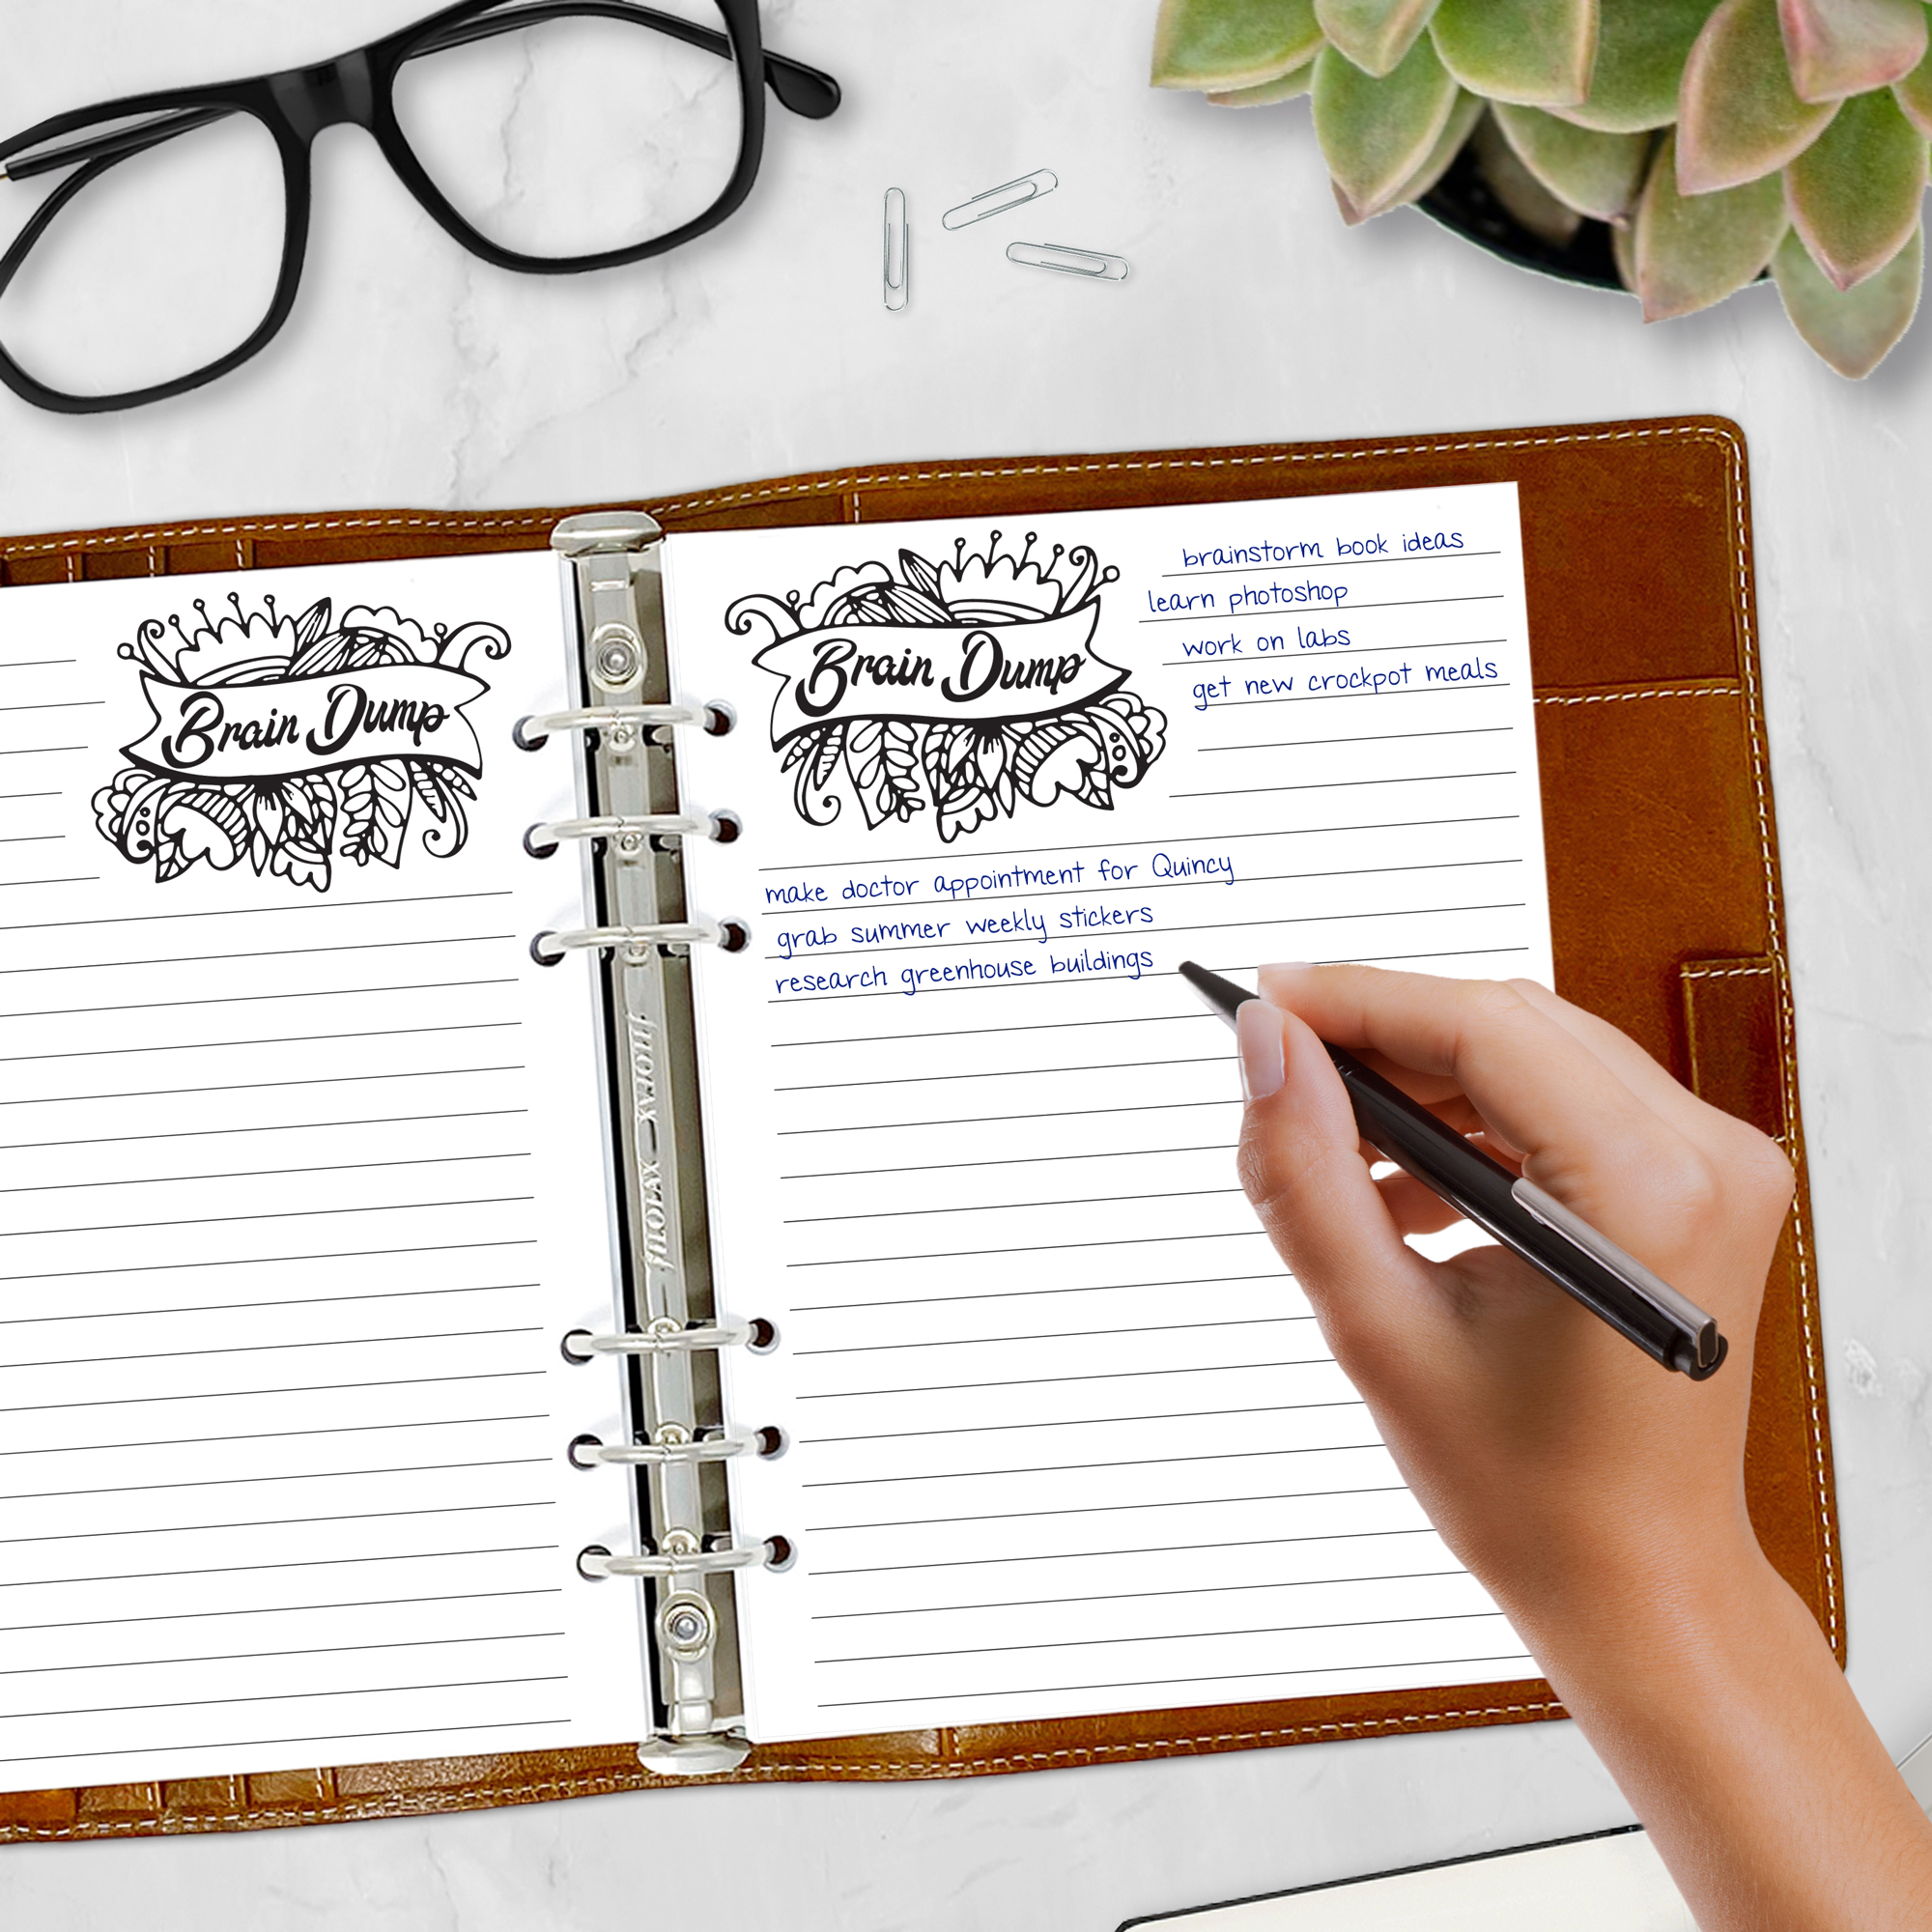 Brain Dump
Brain Dump
brainstorm book ideas
learn photoshop
work on labs
get new crockpot meals
make doctor appointment for Quincy
grab summer weekly stickers
research greenhouse buildings
filofax
filofax